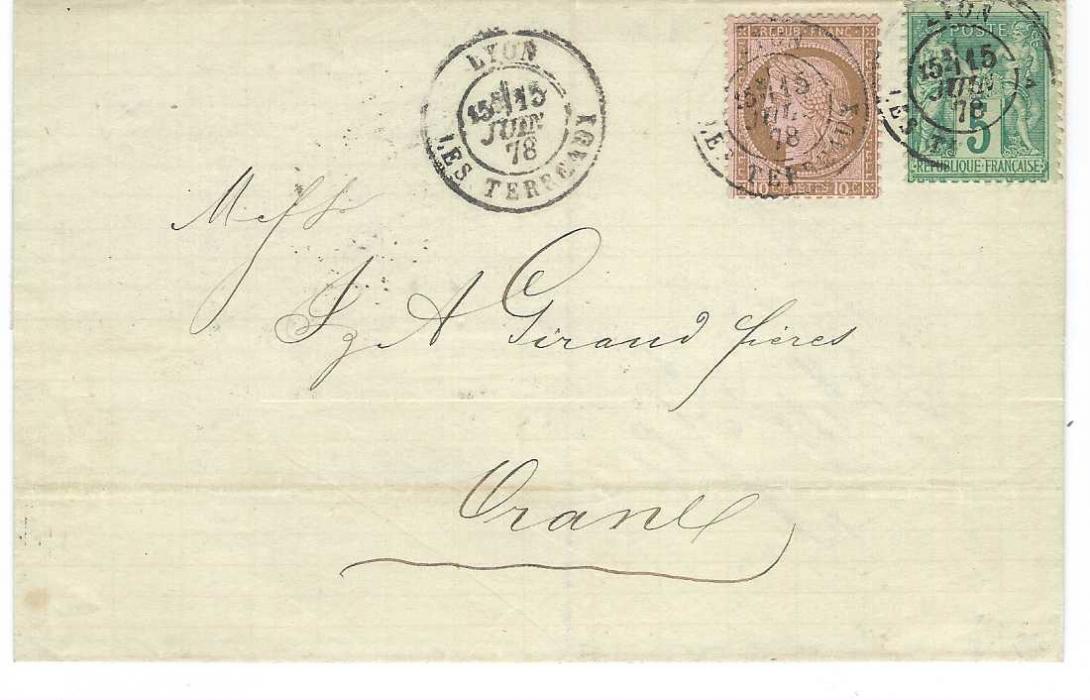 LYON
15 JUIN
78
LES TERREAUX
REPUB FRANC
LYON
15
JUIN
78
LES TERREAUX
10 C. POSTES 10 C.
LYON
POSTE
15
JUIN
78
LES TE
5
REPUBLIQUE FRANÇAISE
Giraud frères
Oran